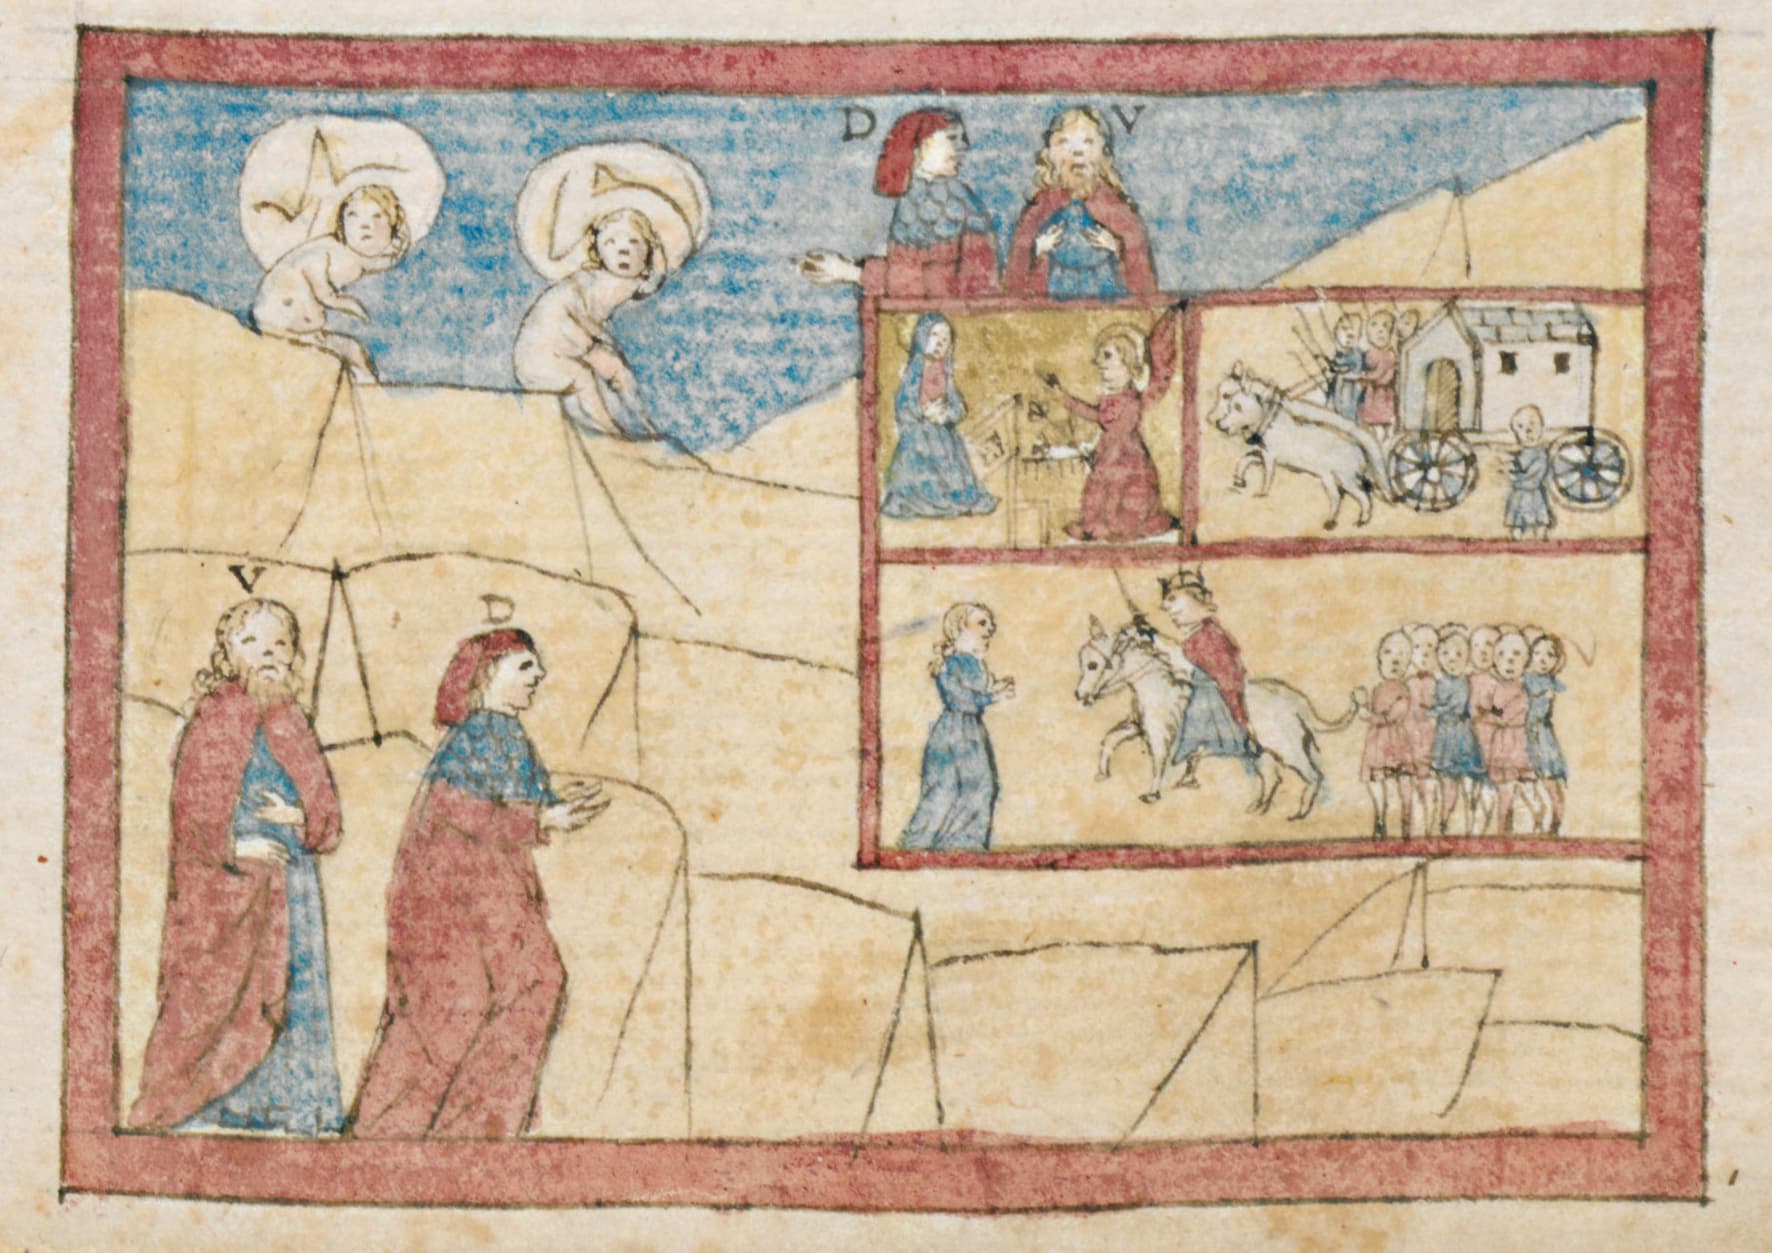 D V
V
D